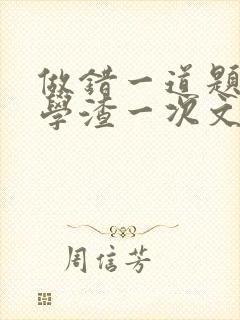 做錯一道題
學渣一次文
周信芳